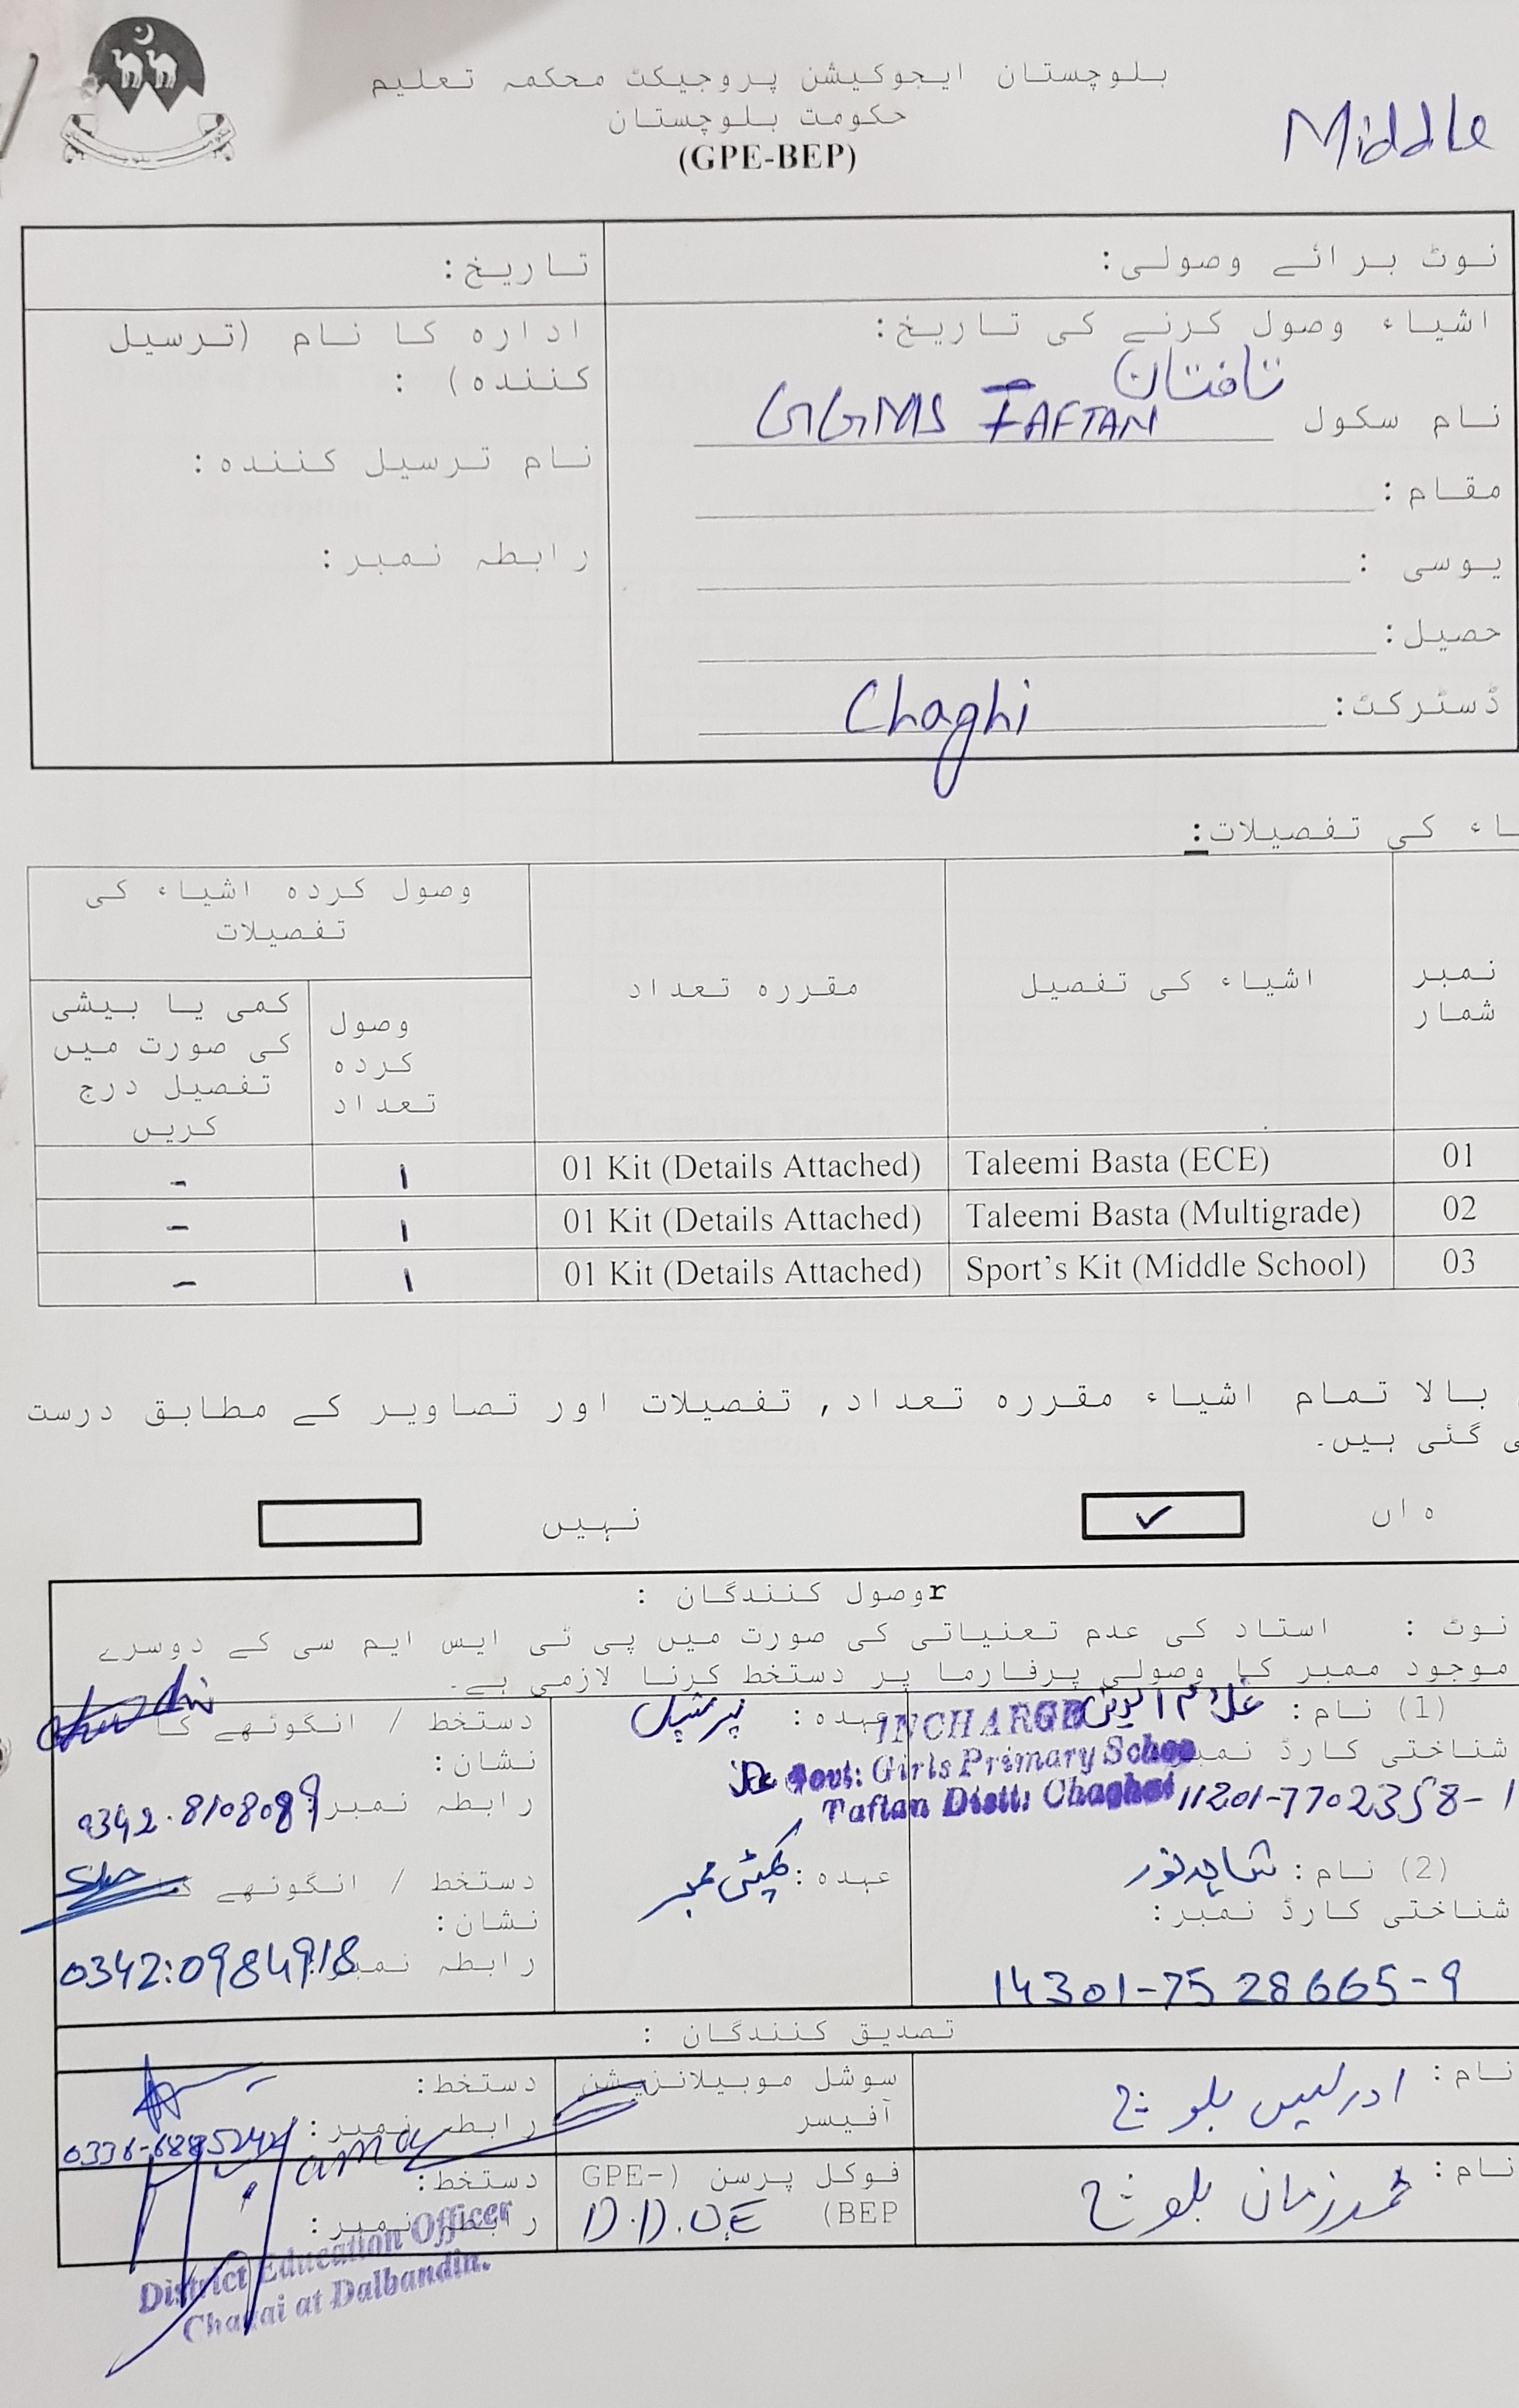 بلوچستان ایجوکیشن پروجیکٹ محکمہ تعلیم
حکومت بلوچستان
(GPE-BEP)
Middle
نوٹ برائے وصولی:
تاریخ:
اشیاء وصول کرنے کی تاریخ:
تافتان
نام سکول GGMS TAFTAN
مقام:
یوسی :
حصیل:
ڈسٹرکٹ: Chaghi
ادارہ کا نام (ترسیل
کنندہ) :
نام ترسیل کنندہ:
رابطہ نمبر:
اء کی تفصیلات:
نمبر شمار
اشیاء کی تفصیل
مقررہ تعداد
وصول کردہ اشیاء کی
تفصیلات
وصول
کردہ
تعداد
کمی یا بیشی
کی صورت میں
تفصیل درج
کریں
01 Taleemi Basta (ECE) 01 Kit (Details Attached) 1 -
02 Taleemi Basta (Multigrade) 01 Kit (Details Attached) 1 -
03 Sport’s Kit (Middle School) 01 Kit (Details Attached) 1 -
بالا تمام اشیاء مقررہ تعداد, تفصیلات اور تصاویر کے مطابق درست
گئی ہیں۔
ہ اں ✓
نہیں
rوصول کنندگان :
نوٹ : استاد کی عدم تعنیاتی کی صورت میں پی ٹی ایس ایم سی کے دوسرے
موجود ممبر کا وصولی پرفارما پر دستخط کرنا لازمی ہے۔
(1) نام: غلام
شناختی کارڈ نمبر
11201-7702358-1
عہدہ: پرنسپل
INCHARGE
Govt: Girls Primary School
Taftan Distt: Chaghai
دستخط / انگوٹھے کا
نشان:
رابطہ نمبر: 0342-8108089
(2) نام: شاہد نور
شناختی کارڈ نمبر:
14301-7528665-9
عہدہ: کمیٹی ممبر
دستخط / انگوٹھے کا
نشان:
رابطہ نمبر 0342:0984918
تصدیق کنندگان :
نام: ادریس بلوچ
سوشل موبیلائزیشن
آفیسر
دستخط:
رابطہ نمبر:
نام: محمد زمان بلوچ
فوکل پرسن (GPE-
BEP) D.D.O.E
دستخط:
رابطہ نمبر:
District Education Officer
Chagai at Dalbandin.